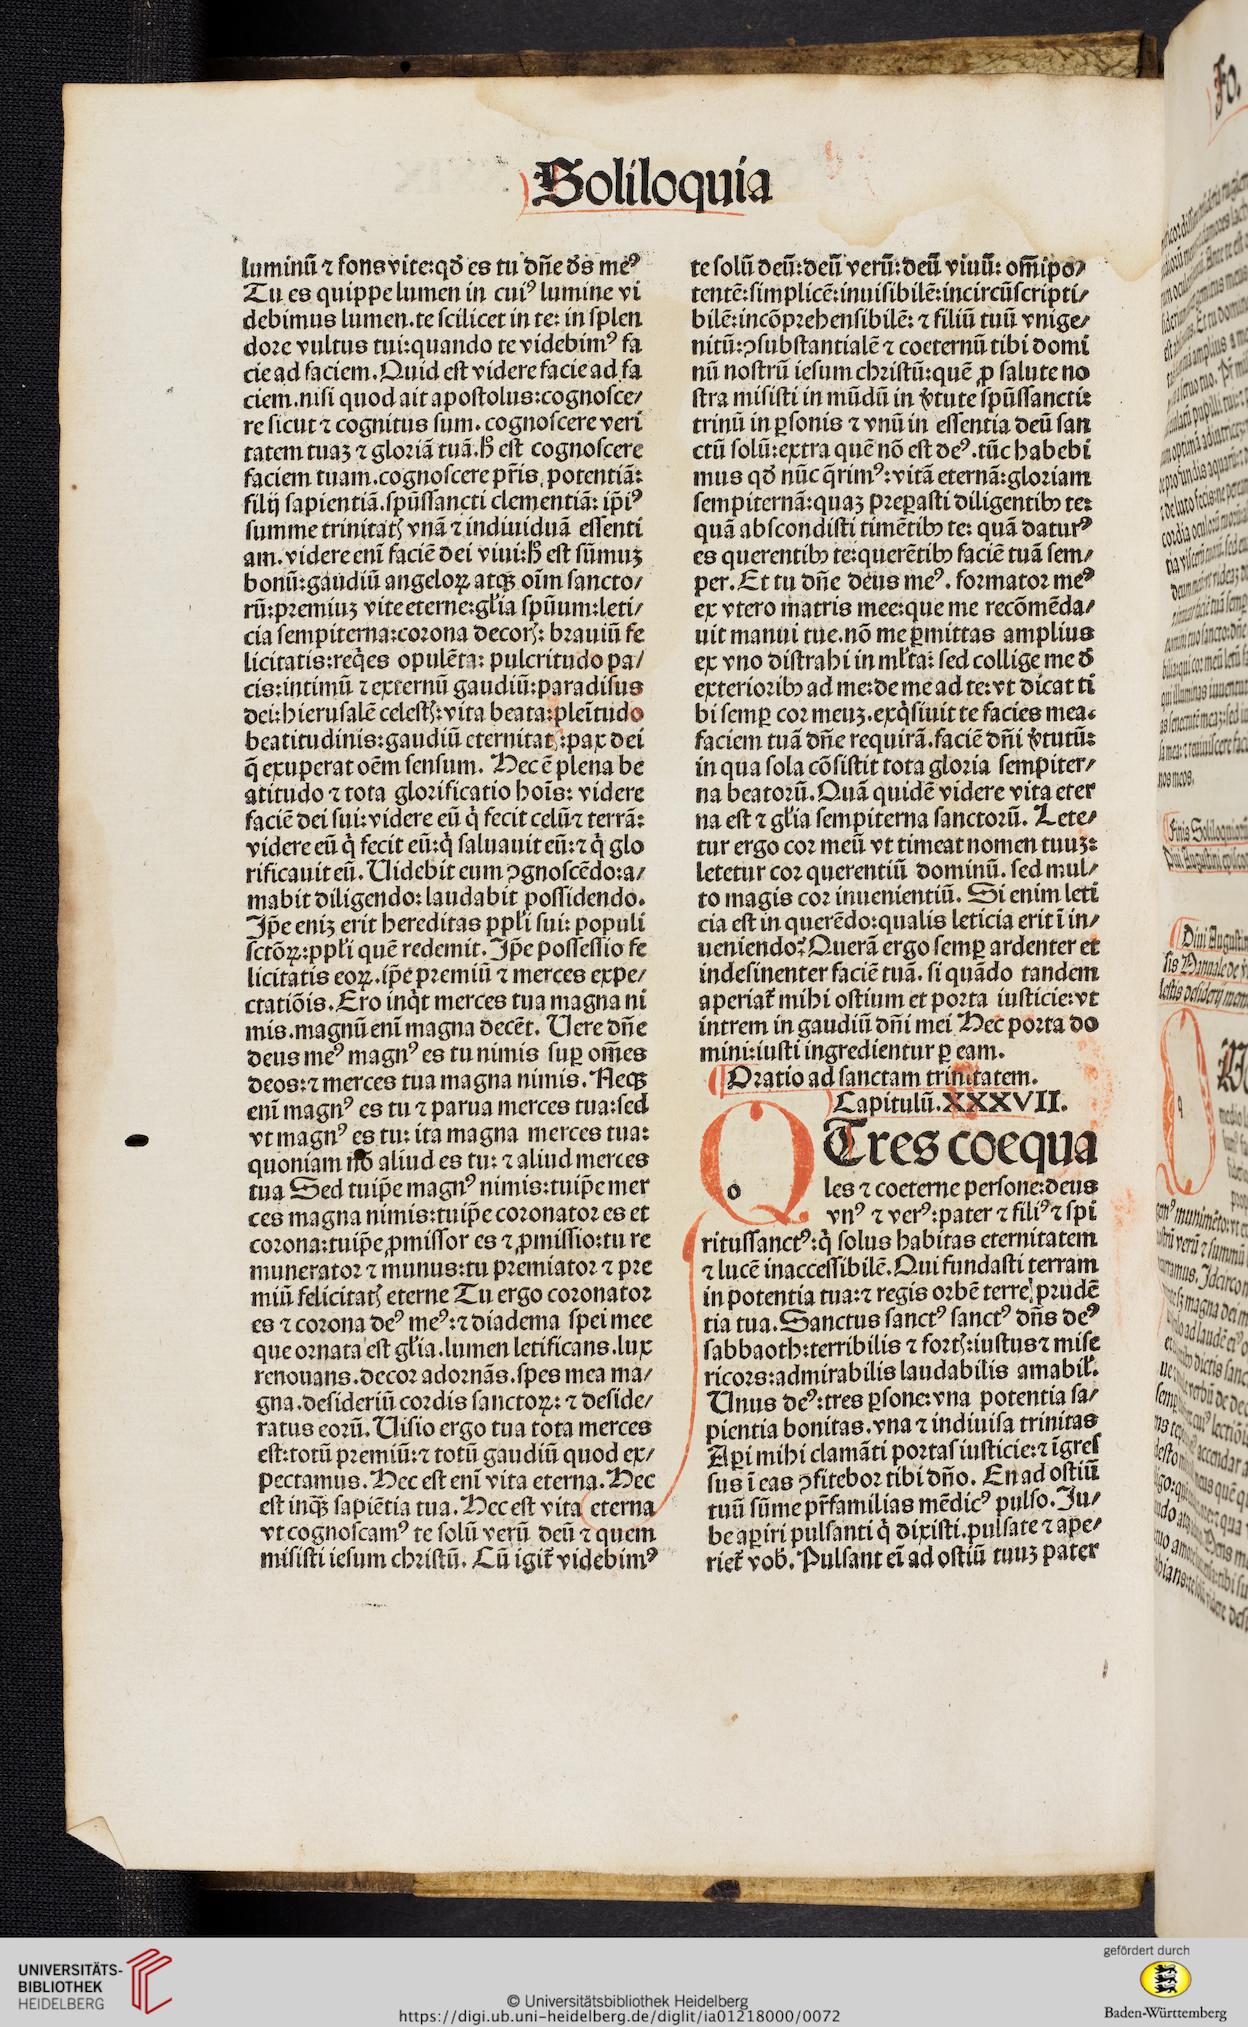 Soliloquia
luminū ⁊ fons vite: qď es tu dñe ďs meꝰ
Tu es quippe lumen in cuiꝰ lumine vi
debimus lumen. te scilicet in te: in splen
dore vultus tui: quando te videbimꝰ fa
cie ad faciem. Quid est videre facie ad fa
ciem. nisi quod ait apostolus: cognosce/
re sicut ⁊ cognitus sum. cognoscere veri
tatem tuaꝫ ⁊ gloriā tuā. hꝰ est cognoscere
faciem tuam. cognoscere pr̄is, potentiā:
filij sapientiā. spūssancti clementiā: ip̄iꝰ
summe trinitatꝭ vnā ⁊ indiuiduā essenti
am. videre enī faciē dei viui: hꝰ est sūmuꝫ
bonū: gaudiū angeloꝝ atqꝫ oīm sancto/
rū: premiuꝫ vite eterne: gl̄ia spūum: leti/
cia sempiterna: corona decorꝭ: brauiū fe
licitatis: reqͥes opulēta: pulcritudo pa/
cis: intimū ⁊ externū gaudiū: paradisus
dei: hierusalē celestꝭ: vita beata: pleītudo
beatitudinis: gaudiū eternitatꝭ: pax dei
q̄ exuperat oēm sensum. Hec ē plena be
atitudo ⁊ tota glorificatio hoīs: videre
faciē dei sui: videre eū qͥ fecit celū ⁊ terrā:
videre eū qͥ fecit eū: qͥ saluauit eū: ⁊ qͥ glo
rificauit eū. Uidebit eum ꝯgnoscēdo: a/
mabit diligendo: laudabit possidendo.
Ip̄e eniꝫ erit hereditas ppl̄i sui: populi
sctōꝝ: ppl̄i quē redemit. Ip̄e possessio fe
licitatis eoꝝ. ip̄e premiū ⁊ merces expe/
ctatiōis. Ero inqͥt merces tua magna ni
mis. magnū enī magna decēt. Uere dñe
deus meꝰ magnꝰ es tu nimis suꝑ om̄es
deos: ⁊ merces tua magna nimis. Neqꝫ
enī magnꝰ es tu ⁊ parua merces tua: sed
vt magnꝰ es tu: ita magna merces tua:
quoniam nō aliud es tu: ⁊ aliud merces
tua Sed tuip̄e magnꝰ nimis: tuip̄e mer
ces magna nimis: tuip̄e coronator es et
corona: tuip̄e ꝓmissor es ⁊ ꝓmissio: tu re
munerator ⁊ munus: tu premiator ⁊ pre
miū felicitatꝭ eterne Tu ergo coronator
es ⁊ corona deꝰ meꝰ: ⁊ diadema spei mee
que ornata est gl̄ia. lumen letificans. lux
renouans. decor adornās. spes mea ma/
gna. desideriū cordis sanctoꝝ: ⁊ deside/
ratus eorū. Uisio ergo tua tota merces
est: totū premiū: ⁊ totū gaudiū quod ex/
pectamus. Hec est enī vita eterna. Hec
est inqͣꝫ sapiētia tua. Hec est vita eterna
vt cognoscamꝰ te solū verū deū ⁊ quem
misisti iesum christū. Cū igit̄ videbimꝰ
te solū deū: deū verū: deū viuū: om̄ipo/
tentē: simplicē: inuisibilē: incircūscripti/
bilē: incōprehensibilē: ⁊ filiū tuū vnige/
nitū: ꝯsubstantialē ⁊ coeternū tibi domi
nū nostrū iesum christū: quē ꝓ salute no
stra misisti in mūdū in v̾tute spūssancti:
trinū in ꝑsonis ⁊ vnū in essentia deū san
ctū solū: extra quē nō est deꝰ. tūc habebi
mus qď nūc q̄rimꝰ: vitā eternā: gloriam
sempiternā: quaꝫ preꝑasti diligentibꝰ te:
quā abscondisti timētibꝰ te: quā daturꝰ
es querentibꝰ te: querētibꝰ faciē tuā sem/
per. Et tu dñe deus meꝰ. formator meꝰ
ex vtero matris mee: que me recōmēda/
uit manui tue. nō me ꝑmittas amplius
ex vno distrahi in ml̄ta: sed collige me ď
exterioribꝰ ad me: de me ad te: vt dicat ti
bi semꝑ cor meuꝫ. exqͥsiuit te facies mea.
faciem tuā dñe requirā. faciē dñi v̾tutū:
in qua sola cōsistit tota gloria sempiter/
na beatorū. Quā quidē videre vita eter
na est ⁊ gl̄ia sempiterna sanctorū. Lete/
tur ergo cor meū vt timeat nomen tuuꝫ:
letetur cor querentiū dominū. sed mul/
to magis cor inuenientiū. Si enim leti
cia est in querēdo: qualis leticia erit ī in/
ueniendo? Querā ergo semꝑ ardenter et
indesinenter faciē tuā. si quādo tandem
aperiat̄ mihi ostium et porta iusticie: vt
intrem in gaudiū dñi mei Hec porta do
mini: iusti ingredientur ꝑ eam.
Oratio ad sanctam trinitatem.
Capitulū. XXXVII.
o
Tres coequa
les ⁊ coeterne persone: deus
vnꝰ ⁊ verꝰ: pater ⁊ filiꝰ ⁊ spi
ritussanctꝰ: qͥ solus habitas eternitatem
⁊ lucē inaccessibilē. Qui fundasti terram
in potentia tua: ⁊ regis orbē terre prudē
tia tua. Sanctus sanctꝰ sanctꝰ dñs deꝰ
sabbaoth: terribilis ⁊ fortꝭ: iustus ⁊ mise
ricors: admirabilis laudabilis amabil̓.
Unus deꝰ: tres ꝑsone: vna potentia sa/
pientia bonitas. vna ⁊ indiuisa trinitas
Aꝑi mihi clamāti portas iusticie: ⁊ īgres
sus ī eas ꝯfitebor tibi dño. En ad ostiū
tuū sūme pr̄familias mēdicꝰ pulso. Iu/
be aꝑiri pulsanti qͥ dixisti. pulsate ⁊ ape/
riet̄ vob̓. Pulsant eī ad ostiū tuuꝫ pater
Fo.
UNIVERSITÄTS-
BIBLIOTHEK
HEIDELBERG
© Universitätsbibliothek Heidelberg
https://digi.ub.uni-heidelberg.de/diglit/ia01218000/0072
gefördert durch
Baden-Württemberg